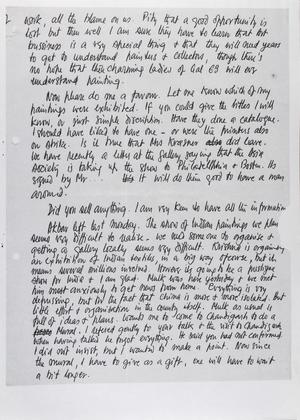 work, all the blame on us. Pity that a good opportunity is
lost but then well I am sure they have to learn that art
business is a very special thing & that they will need years
to get to understand painters & collectors, though there's
no hope that the charming ladies of Gal 63 will ever
understand painting.
Now please do me a favour. Let me know which of my
paintings were exhibited. If you could give the titles I will
know, or just simple discription. Have they done a catalogue.
I should have liked to have one - or were the printers also
on strike. Is it true that Mrs also did leave.
We have recently a letter at the gallery saying that the Asia
Society is taking up the show to Philadelphia & Its
signed by Mr It will do them good to have a man
around.
Did you sell anything. I am very keen to have all the information
left last Monday. The show of Indian paintings we plan
seems very difficult to realise. We need some one to organise
getting a gallery really seems very difficult. is organising
an exhibition of Indian textiles, in a big way ofcourse, but it
means several millions involved. is going to be a prestigue
show for India & I am glad. Mulk was here yesterday & we met
him most anxiously to get news from home. Everything is very
depressing, but for the fact that China is more & more isolated. But
little effort & organisation in the country itself. Mulk as usual is
full of ideas & plans. Wants me to come to Chandigarh to do a
Mural. I refered gently to your talk & the visit to Chandigarh
when having talked he forgot everything. He said you had not confirmed
I did not insist, but I wanted to make a point. Now since
the mural, I have to give as a gift, one will have to wait
a bit longer.